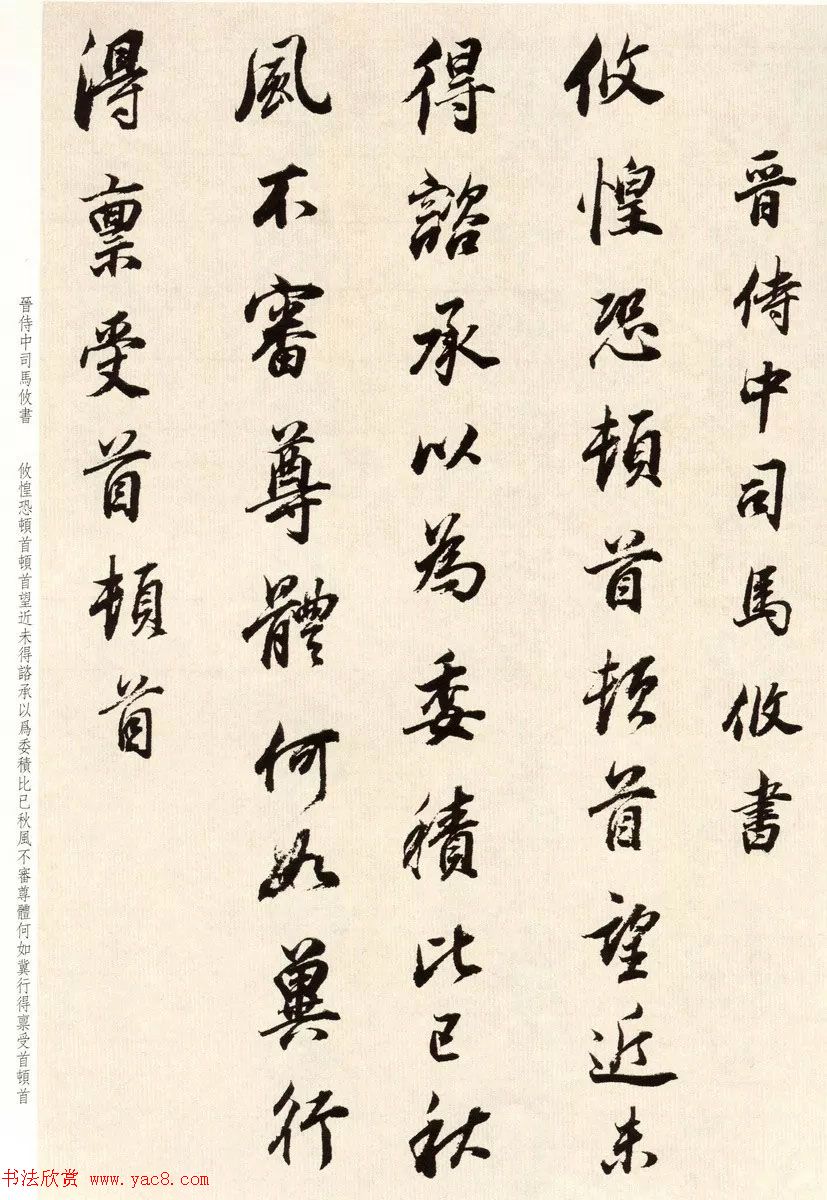 晉侍中司馬攸書
攸惶恐頓首頓首望近未
得諮承以為委積比已秋
風不審尊體何如冀行
得稟受首頓首
晉侍中司馬攸書 攸惶恐頓首頓首望近未得諮承以爲委積比已秋風不審尊體何如冀行得稟受首頓首
书法欣赏 www.yac8.com